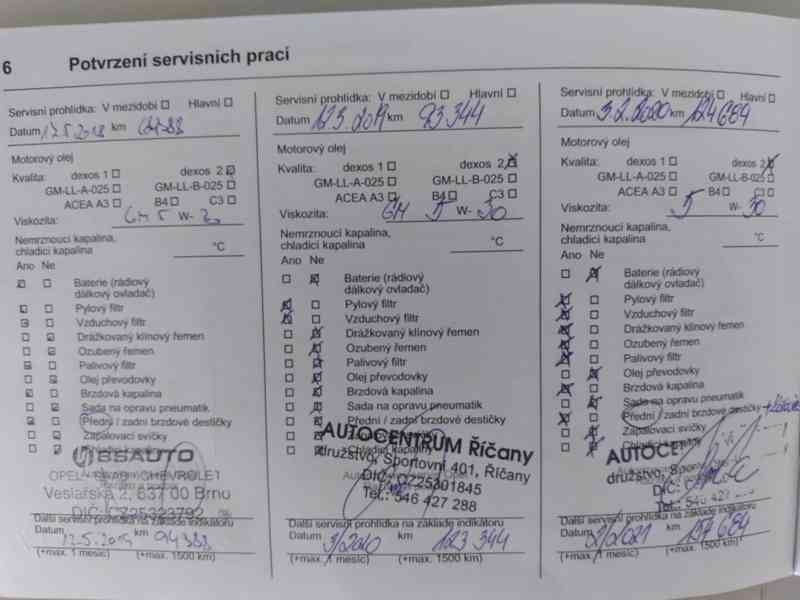 6 Potvrzení servisních prací
Servisní prohlídka: V mezidobí Hlavní
Datum 12.5.2018 km
Motorový olej
Kvalita: dexos 1 dexos 2
GM-LL-A-025 GM-LL-B-025
ACEA A3 B4 C3
Viskozita: GM 5 W-
Nemrznoucí kapalina,
chladicí kapalina °C
Ano Ne
Baterie (rádiový
dálkový ovladač)
Pylový filtr
Vzduchový filtr
Drážkovaný klínový řemen
Ozubený řemen
Palivový filtr
Olej převodovky
Brzdová kapalina
Sada na opravu pneumatik
Přední / zadní brzdové destičky
Zapalovací svíčky
OPEL CHEVROLET
Veslařská 2, 637 00 Brno
DIČ: CZ25323792
Další servisní prohlídka na základě indikátoru
Datum 12.5.2019 km 94388
(+max. 1 měsíc) (+max. 1500 km)
Servisní prohlídka: V mezidobí Hlavní
Datum 12.3.2019 km 93 344
Motorový olej
Kvalita: dexos 1 dexos 2
GM-LL-A-025 GM-LL-B-025
ACEA A3 B4 C3
Viskozita: GM 5 W- 30
Nemrznoucí kapalina,
chladicí kapalina °C
Ano Ne
Baterie (rádiový
dálkový ovladač)
Pylový filtr
Vzduchový filtr
Drážkovaný klínový řemen
Ozubený řemen
Palivový filtr
Olej převodovky
Brzdová kapalina
Sada na opravu pneumatik
Přední / zadní brzdové destičky
AUTOCENTRUM Říčany
družstvo, Sportovní 401, Říčany
DIČ: CZ25301845
Tel.: 546 427 288
Další servisní prohlídka na základě indikátoru
Datum 3/2020 km 123 344
(+max. 1 měsíc) (+max. 1500 km)
Servisní prohlídka: V mezidobí Hlavní
Datum 3.2.2020 km 124 684
Motorový olej
Kvalita: dexos 1 dexos 2
GM-LL-A-025 GM-LL-B-025
ACEA A3 B4 C3
Viskozita: 5 W- 30
Nemrznoucí kapalina,
chladicí kapalina °C
Ano Ne
Baterie (rádiový
dálkový ovladač)
Pylový filtr
Vzduchový filtr
Drážkovaný klínový řemen
Ozubený řemen
Palivový filtr
Olej převodovky
Brzdová kapalina
Sada na opravu pneumatik
Přední / zadní brzdové destičky
Zapalovací svíčky
AUTOCE
družstvo, Spor
DIČ:
Tel.: 546 427
Další servisní prohlídka na základě indikátoru
Datum 2/2021 km 154 684
(+max. 1 měsíc) (+max. 1500 km)